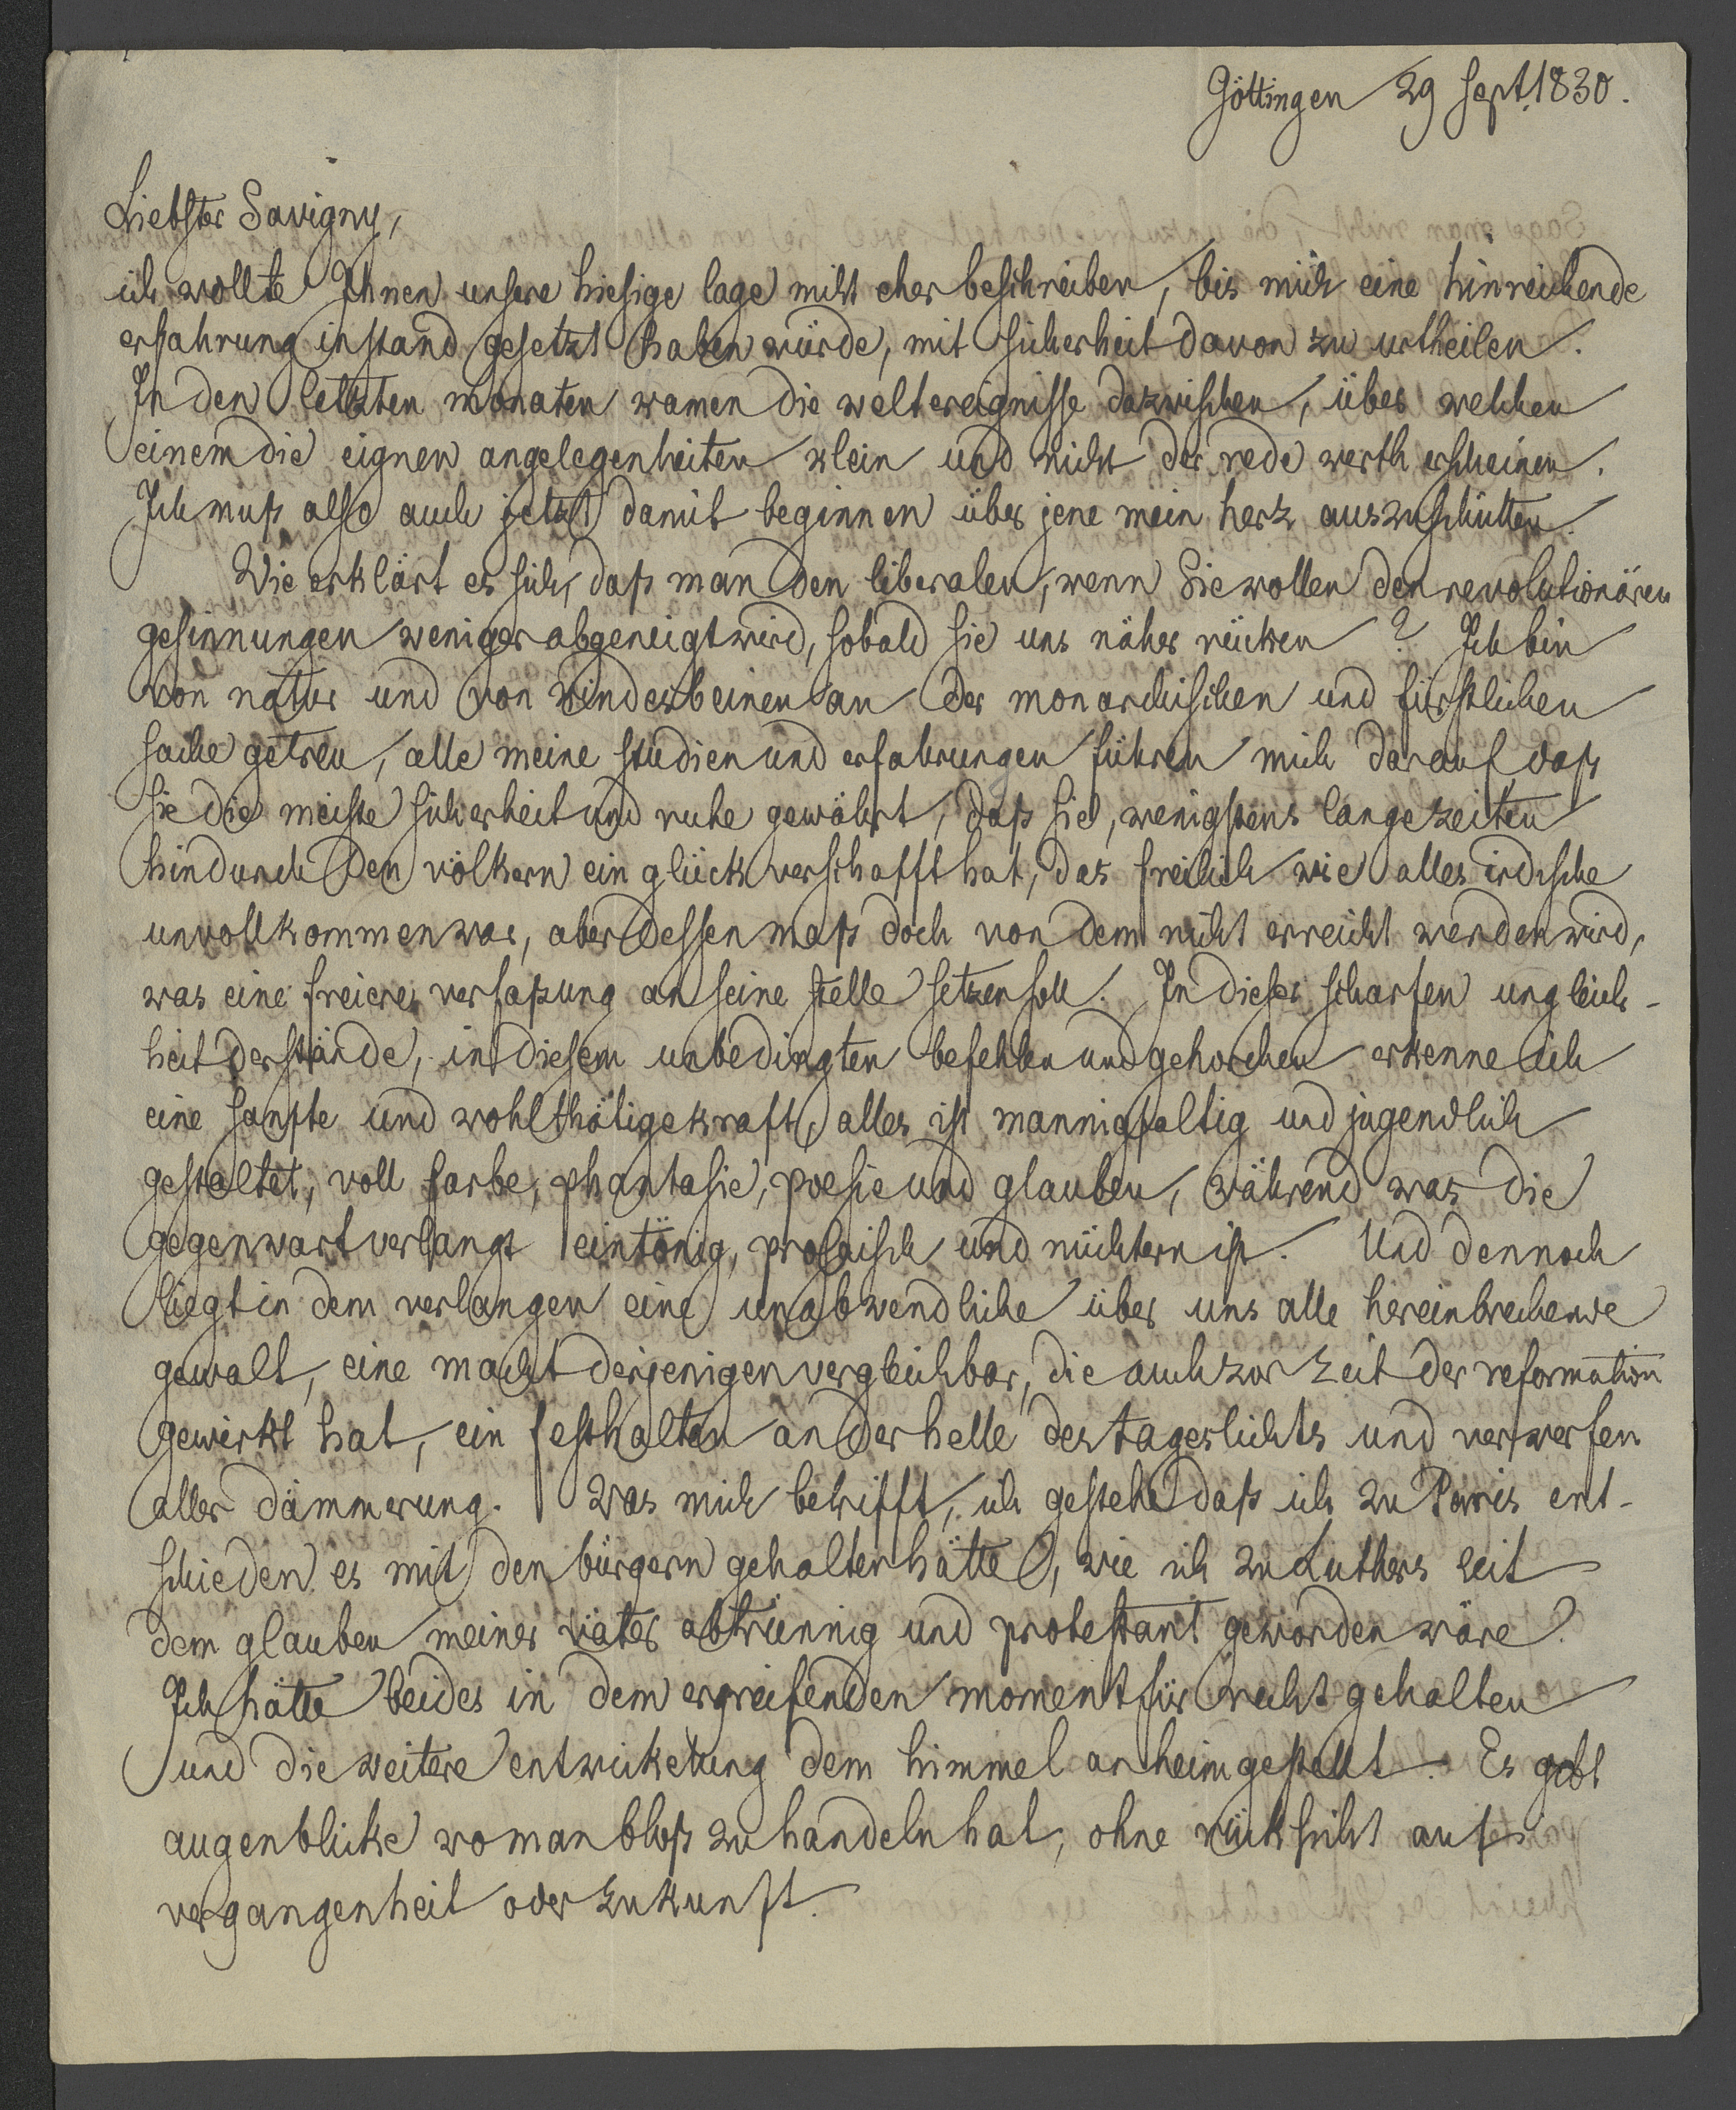 Göttingen 29 sept. 1830.
Liebster Savigny,
ich wollte Ihnen unsere hiesige lage nicht eher beschreiben, bis mich eine hinreichende
erfahrung instand gesetzt haben würde, mit sicherheit davon zu urtheilen.
In den letzten monaten kamen die weltereignisse dazwischen, über welchen
einem die eignen angelegenheiten klein und nicht der rede werth erscheinen.
Ich muß also auch jetzt damit beginnen über jene mein herz auszuschütten.
Wie erklärt es sich, daß man den liberalen, wenn Sie wollen den revolutionären
gesinnungen weniger abgeneigt wird, sobald sie uns näher rücken? Ich bin
von natur und von kindesbeinen an der monarchischen und fürstlichen
sache getreu, alle meine studien und erfahrungen führen mich darauf daß
sie die meiste sicherheit und ruhe gewährt, daß sie, wenigstens lange zeiten
hindurch den völkern ein glück verschafft hat, das freilich wie alles irdische
unvollkommen war, aber dessen maß doch von dem nicht erreicht werden wird,
was eine freiere verfaßung an seine stelle setzen soll. In dieser scharfen ungleich-
heit der stände, in diesem unbedingten befehlen und gehorchen erkenne ich
eine sanfte und wohlthätige kraft, alles ist mannigfaltig und jugendlich
gestaltet, voll farbe, phantasie, poesie und glauben, während was die
gegenwart verlangt eintönig, prosaisch und nüchtern ist. Und dennoch
liegt in dem verlangen eine unabwendliche über uns alle hereinbrechende
gewalt, eine macht derjenigen vergleichbar, die auch zur zeit der reformation
gewirkt hat, ein festhalten an der helle des tageslichts und verwerfen
aller dämmerung. Was mich betrifft, ich gestehe daß ich zu Paris ent-
schieden es mit den bürgern gehalten hätte, wie ich zu Luthers zeit
dem glauben meiner väter abtrünnig und protestant geworden wäre.
Ich hätte beides in dem ergreifenden moment für recht gehalten
und die weitere entwickelung dem himmel anheimgestellt. Es gibt
augenblicke wo man bloß zu handeln hat, ohne rücksicht auf
vergangenheit oder zukunft.